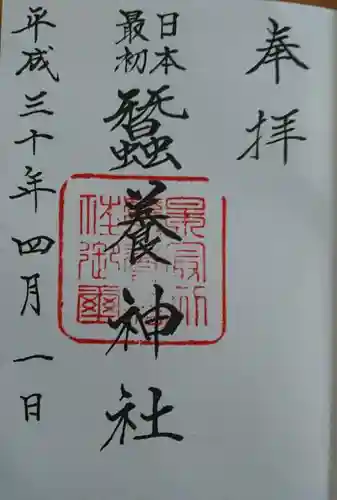 奉拝
日本
最初
蠶養神社
平成三十年四月一日